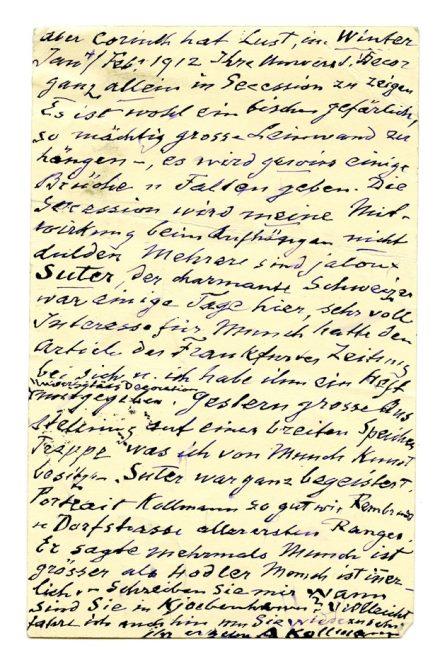 aber Corinth hat Lust, im Winter
Jan/Feb 1912 Ihre Univers. Decor
ganz allein in Secession zu zeigen
Es ist wohl ein bischen gefärlich,
so mächtig grosse Leinwand zu
hängen –, es wird gewiss einige
Brüche u Falten geben. Die
Secession wird meine Mit-
wirkung beim Aufhängen nicht
dulden Mehrere sind jaloux
Suter, der charmante Schweizer
war einige Tage hier, sehr voll
Interesse für Munch hatte den
Article der Frankfurter Zeitung
bei sich u. ich habe ihm ein Heft
Universitäts Decoration
mitgegeben gestern grosse Aus
stellung auf einer breiten Speicher
Treppe was ich von Munch Kunst
besitze. Suter war ganz begeistert
Portrait Kollmann so gut wie Rembrandt
u Dorfstrasse allerersten Ranges.
Er sagte mehrmals Munch ist
grösser als Hodler Munch ist inner-
lich. Schreiben Sie mir wann
sind Sie in Kjoebenhavn? Vielleicht
fahre ich auch hin um Sie wieder zu sehn
Ihr A Kollmann